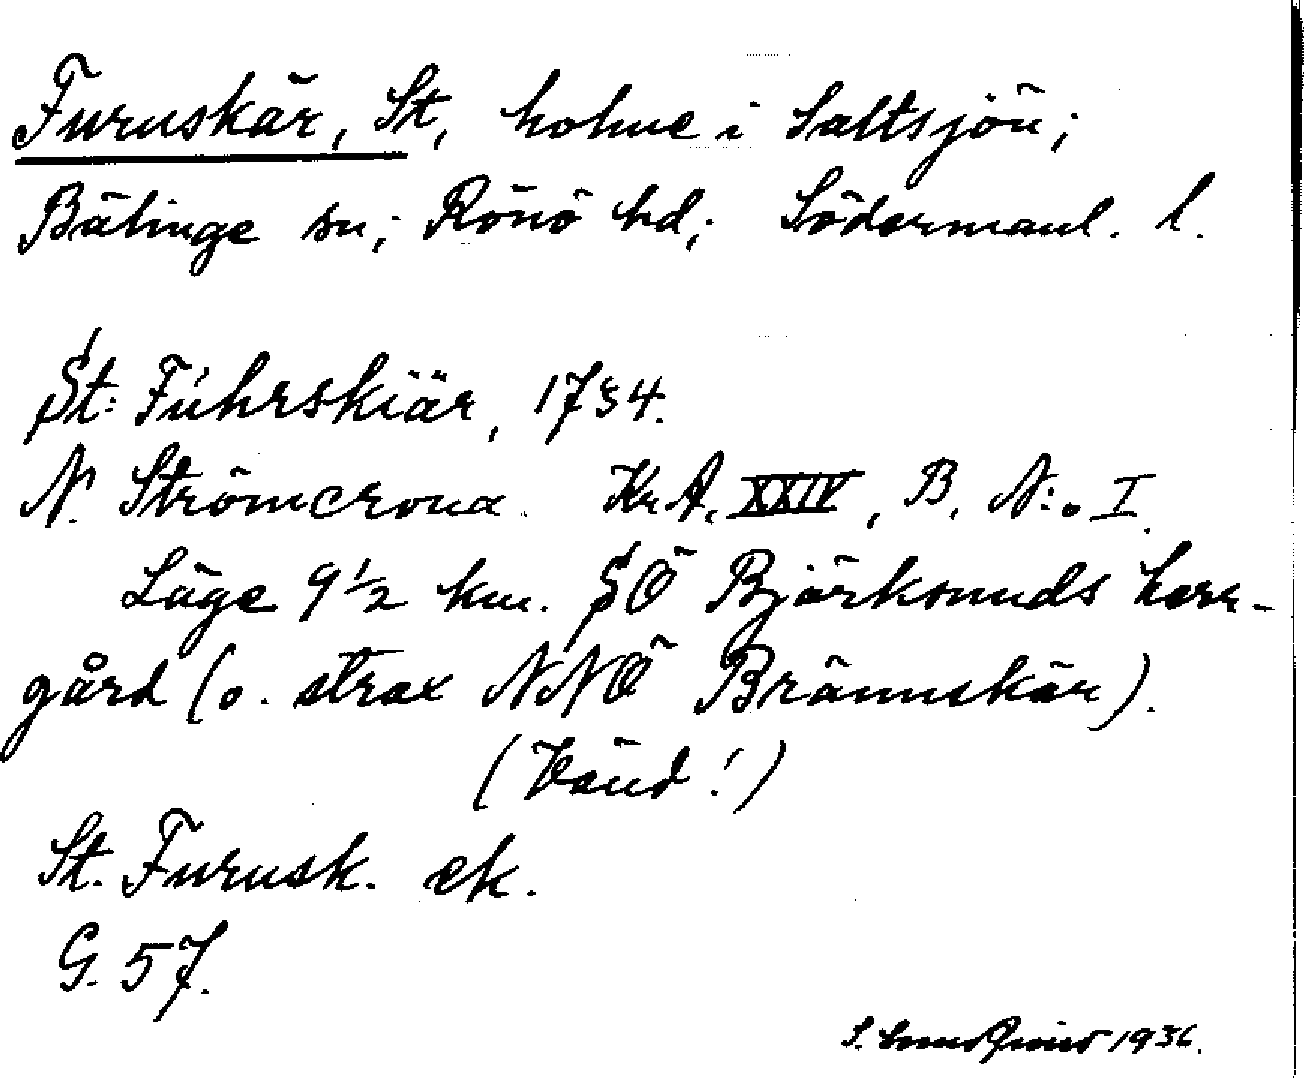 Furuskär, St, holme i Saltsjön;
Bälinge sn; Rönö hd; Södermanl. l.
St: Fúhrskiär, 1734.
N. Strömcrona. Kr A, XXIV, B, N:o I.
Läge 9 1/2 km. SÖ Björksunds herr-
gård (o. strax NNÖ Brännskär).
(Vänd!)
St. Furusk. ek.
G. 57.
S. 1936.